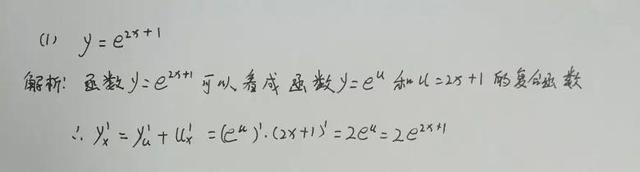 (1) y=e^{2x+1}
解析: 函数y=e^{2x+1}可以看成函数y=e^u和u=2x+1的复合函数
∴ y'_x = y'_u + u'_x = (e^u)'·(2x+1)' = 2e^u = 2e^{2x+1}